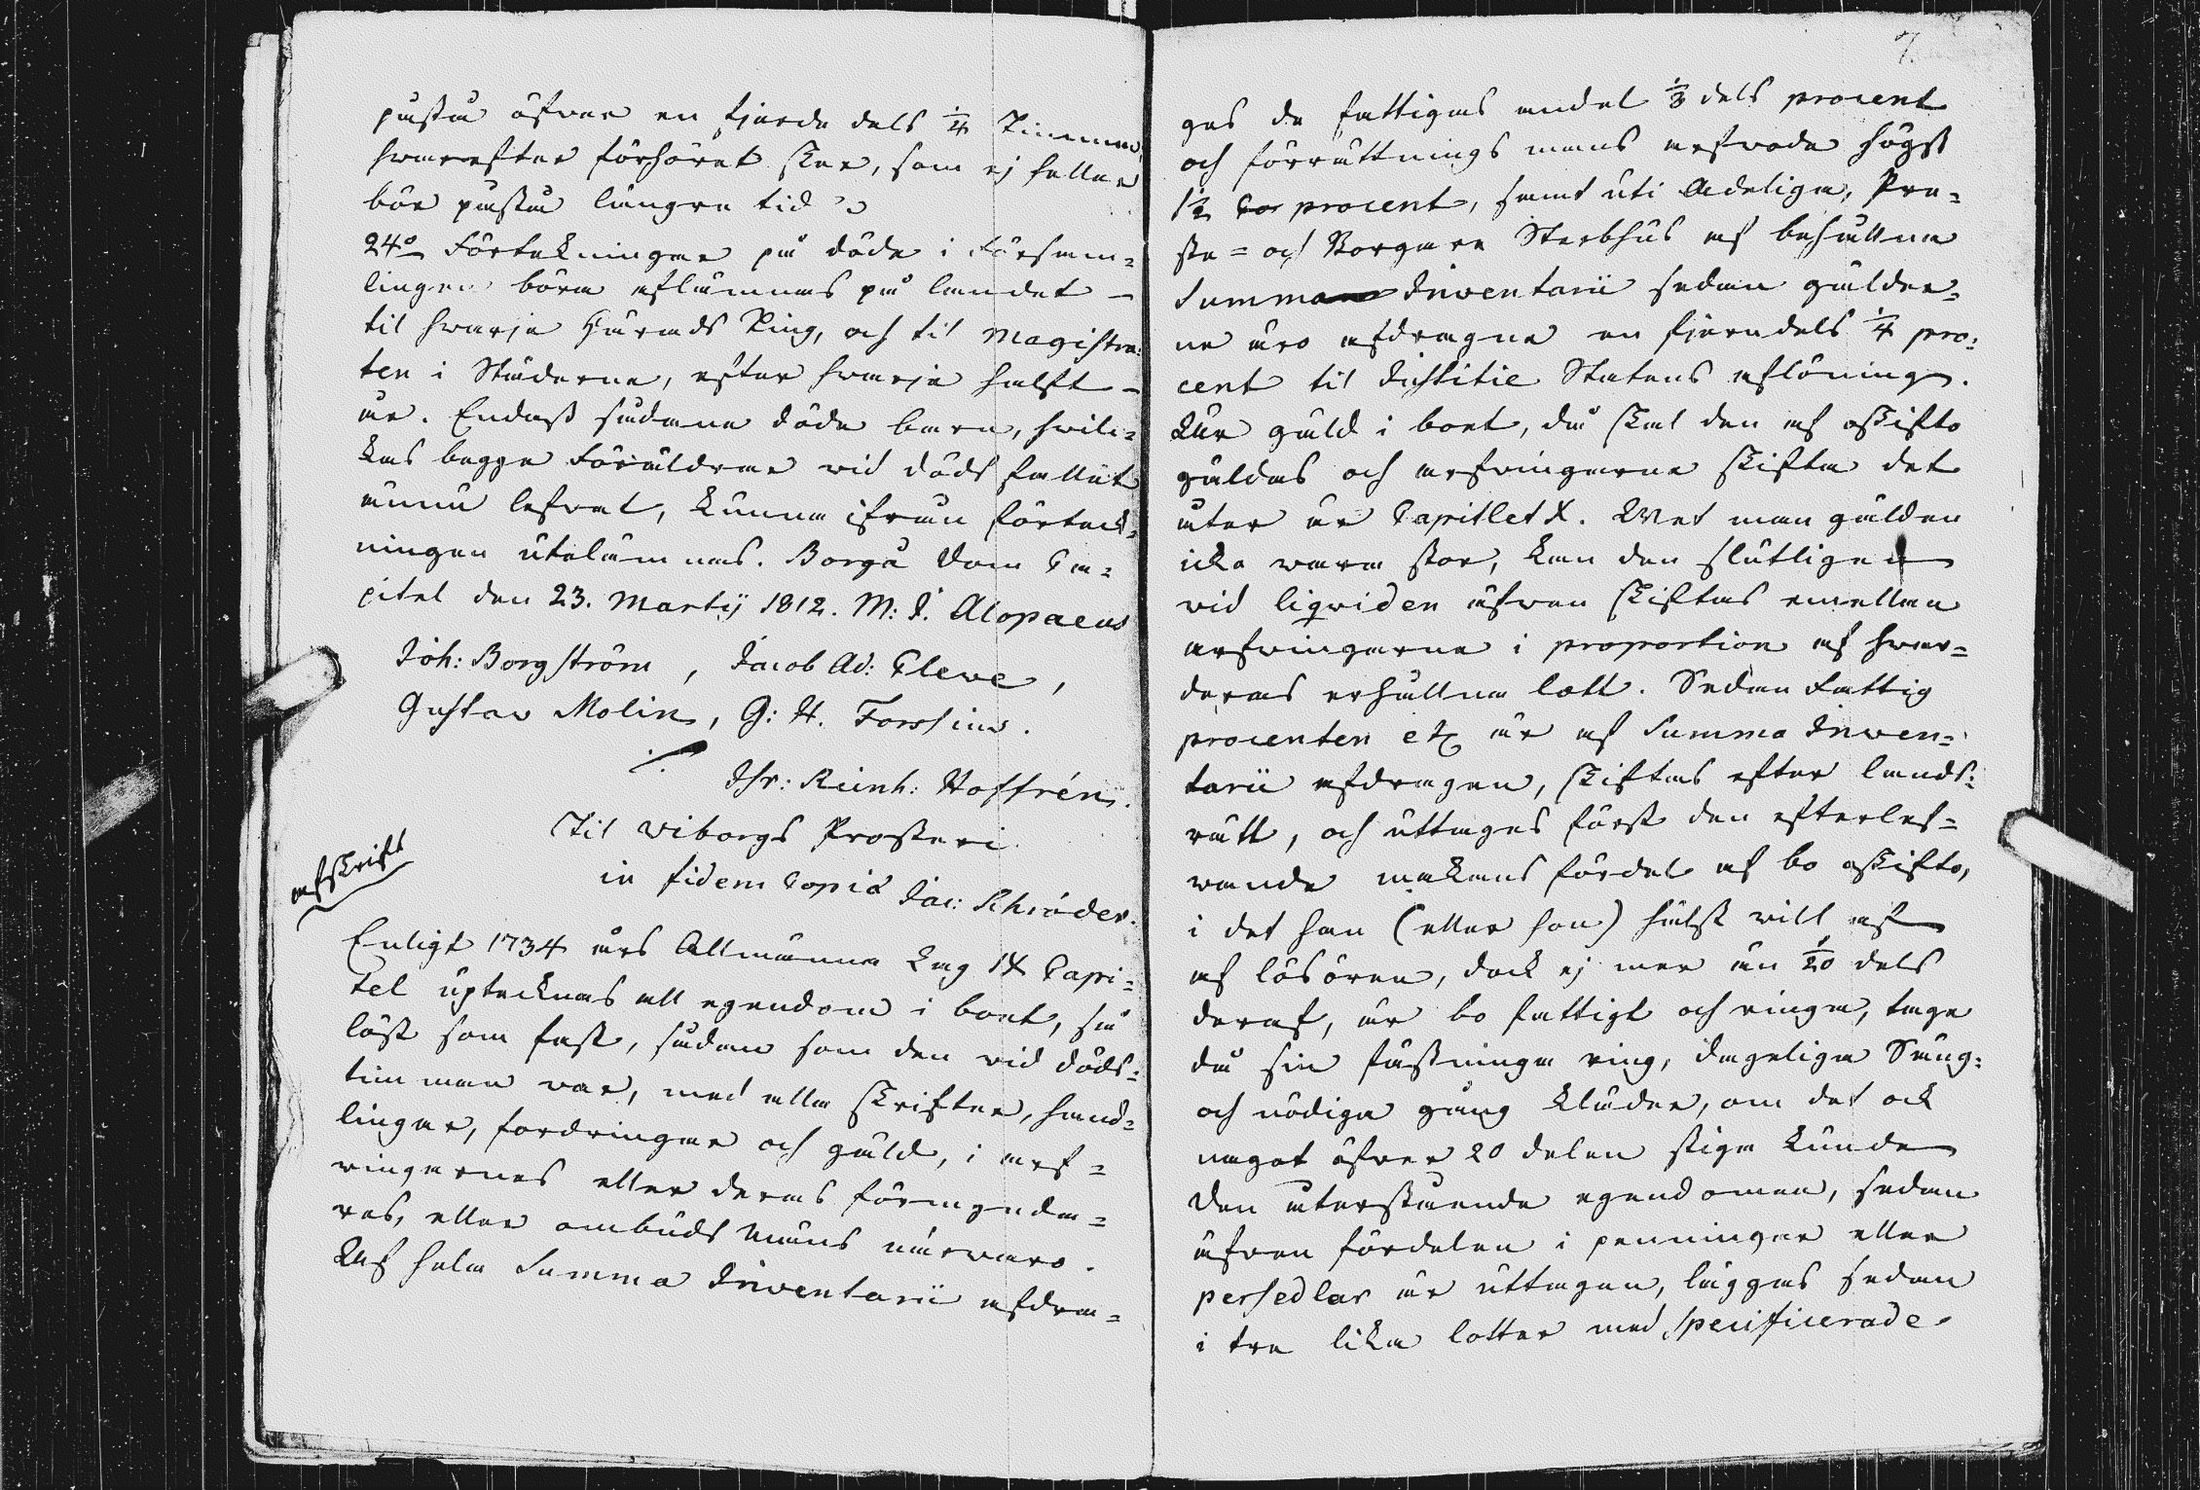 påstå öfver en fjerde dels 1/4 Timma,
hvarefter förhöret sker, som ej heller
bör påstå längre tid
24o Förtekningar på döde i Försam=
lingen böra aflämnas på landet –
til hvarje Härads Ting, och til Magistra:
ten i Städerna, efter hvarje halft –
år. Endast sådana döde barn, hvil=
kas begge Föräldrar vid dödsfallet
ännu lefvat, kunna ifrån förteck=
ningen utelämnas. Borgå Dom Ca=
pitel den 23. Martij 1812. M: J. Alopaeus
Joh: Borgström, Jacob Ad: Cleve,
Gustav Molin, G: H. Forssius.
Chr: Reinh: Hoffrén.
Til Viborgs Prosteri
in fidem Copiæ Jac: Schröder.
afskrift
Enligt 1734 års Allmänna Lag IX Capi=
tel uptecknas all egendom i boet, så
löst som fast, sådan som den vid döds=
timman var, med alla skrifter, hand=
lingar, fordringar och gäld, i arf=
vingarnes eller deras förmynda=
res, eller ombuds mäns närvaro.
Af hela Summa Inventarii afdra=
7.
gas de fattigas andel 1/8 dels procent
och förrättnings mans arfvode högst
1/2 Co procent, samt uti Adeliga, Pre=
ste= och Borgare Sterbhus af behållna
Summa Inventarii sedan gälder=
na äro afdragne en fjerndels 1/4 pro:
cent til Justitie Statens aflöning.
Är gäld i boet, då skal den af oskifto
gäldas och arfvingarna skifta det
åter är Capitlet X. Vet man gälden
icke vara stor, kan den slutligen
vid liqviden äfven skiftas emellan
arfvingarna i proportion af hvar=
deras erhållna lott. Sedan Fattig
procenten etc är af Summa Inven=
tarii afdragen, skiftas efter lands=
rätt, och uttages först den efterlef=
vande makans fördel af bo oskifto,
i det han (eller hon) hälst vill af
af lösören, dock ej mer än 1/20 dels
deraf, är bo fattigt och ringa, tage
då sin fästninga ring, dageliga Säng=
och nödiga gång kläder, om det ock
något öfver 20 delen stiga kunde
Den återstående egendomen, sedan
äfven fördelen i penningar eller
persedlar är uttagen, läggas sedan
i tre lika lotter med specificerade